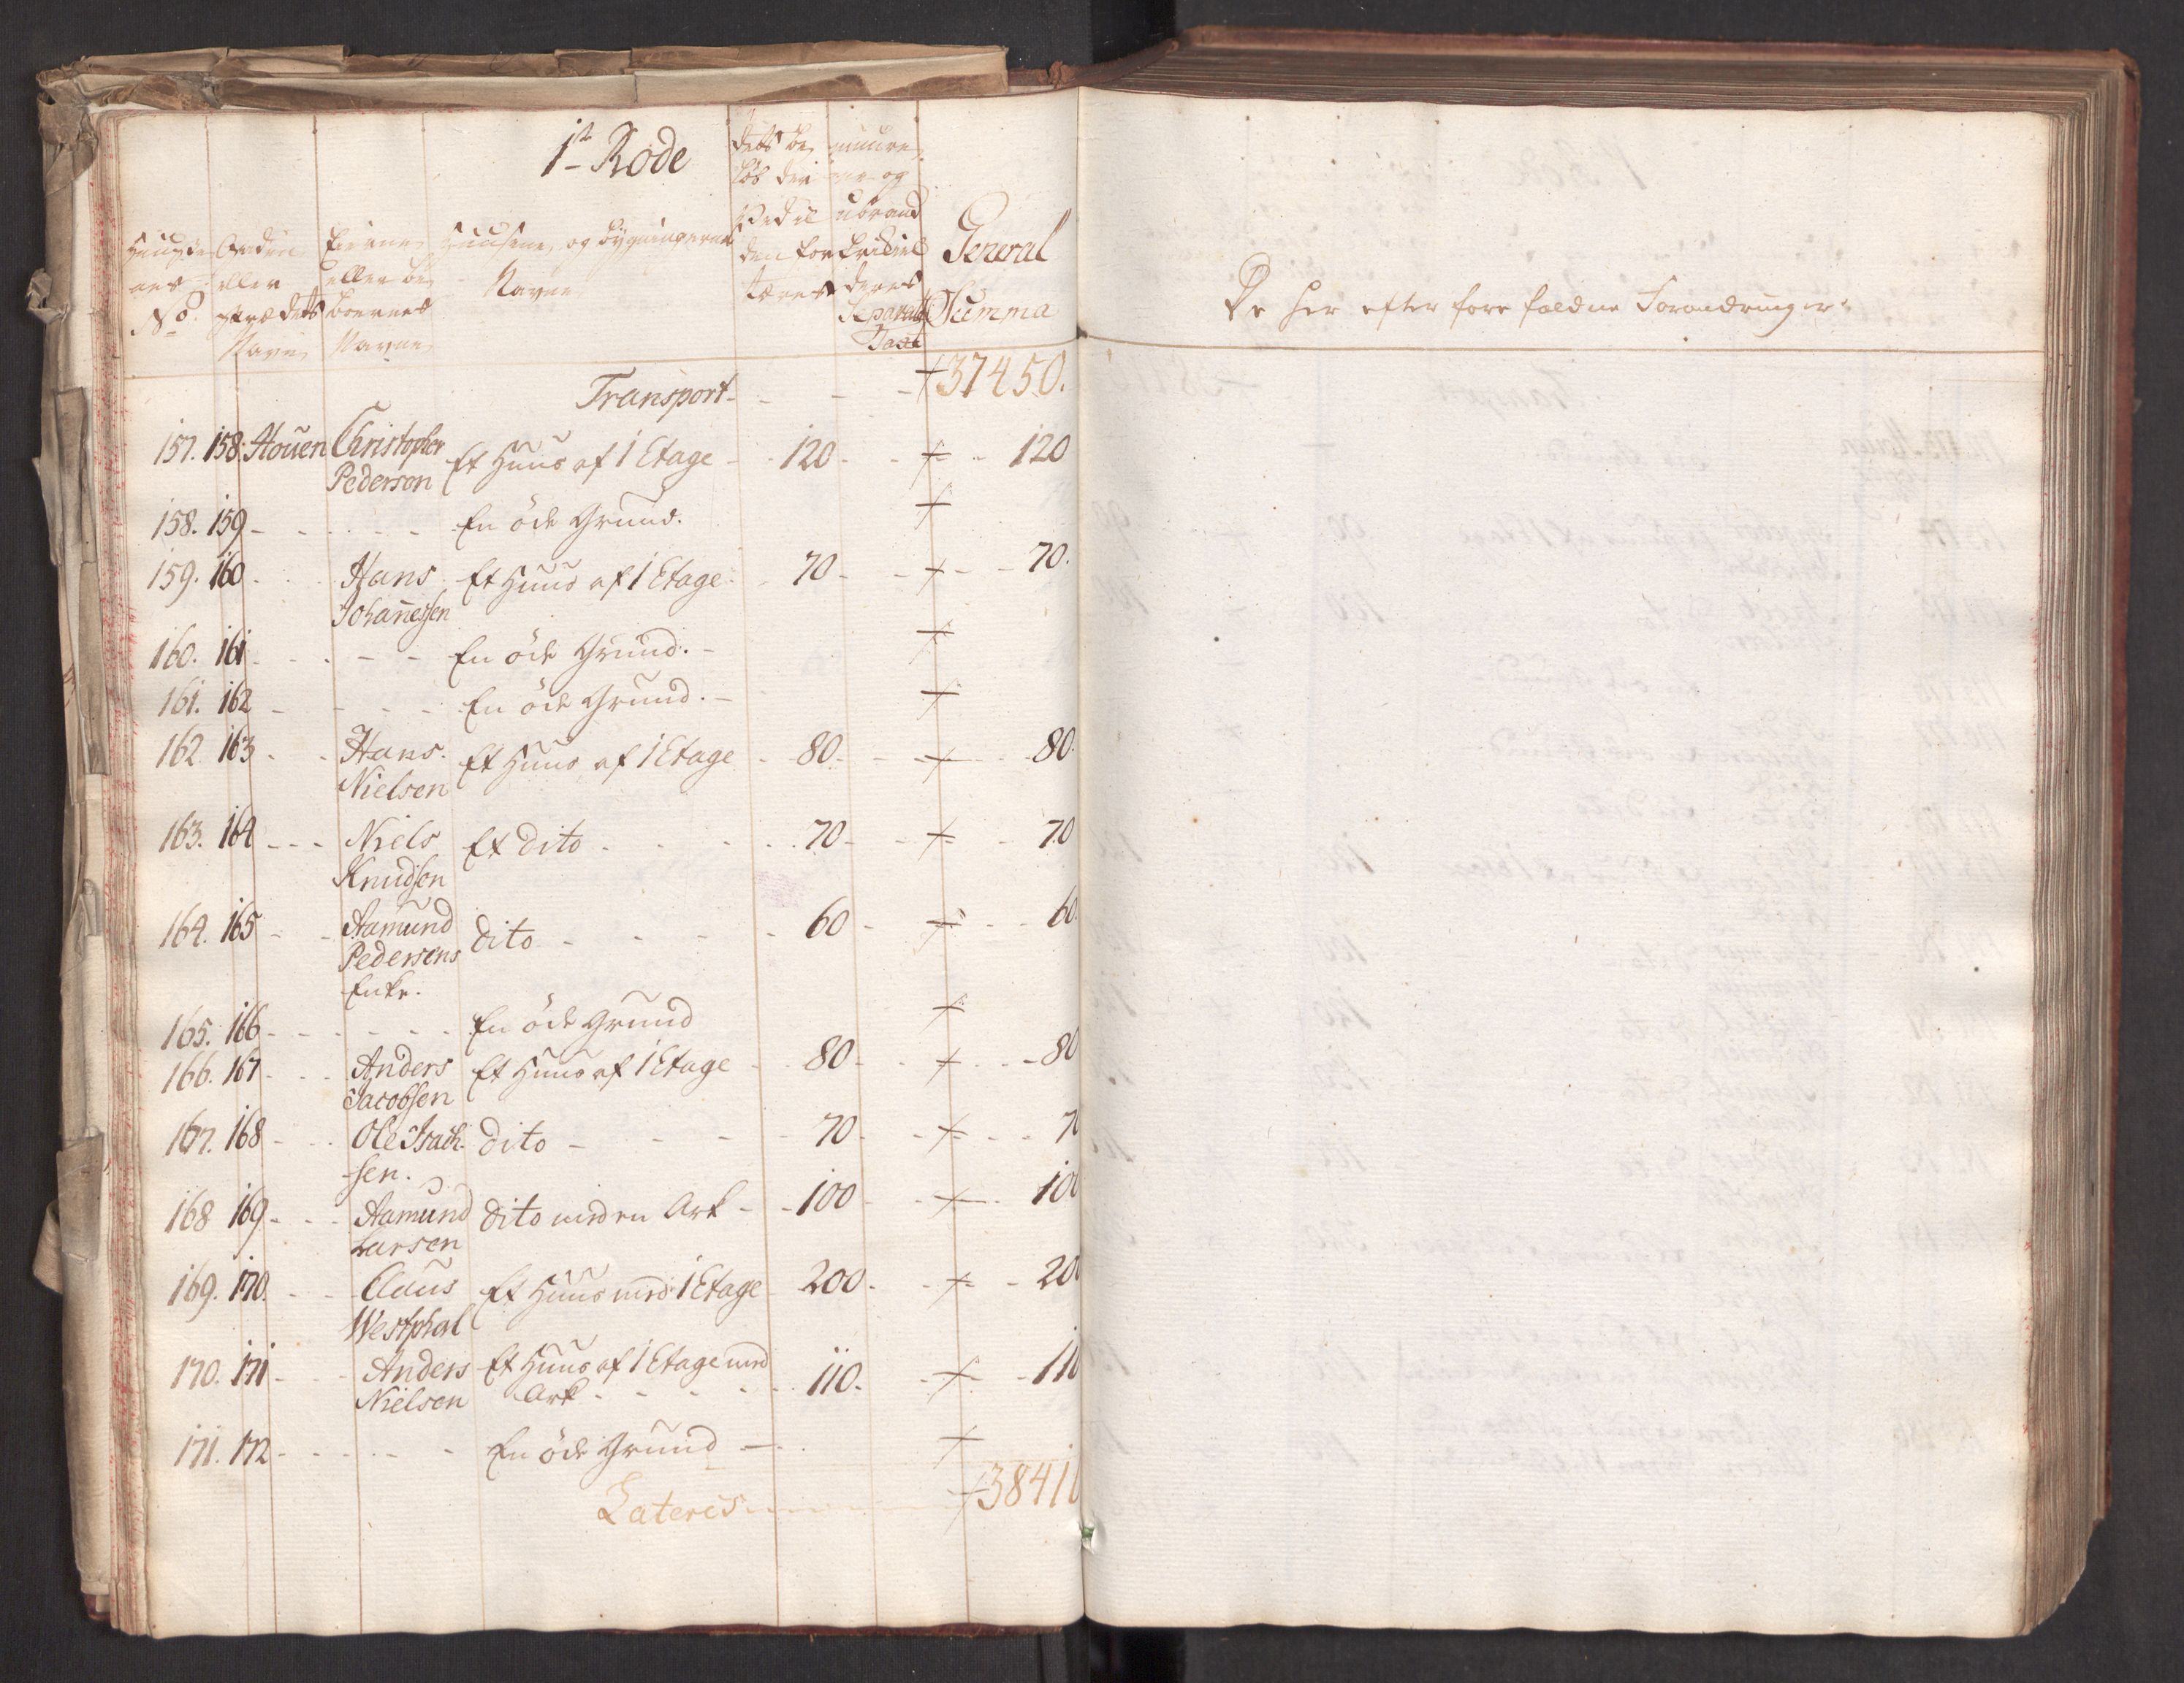 1te Rode
General
Summa
No
Navn Navne
Navne
eller
Huusene og Bygningernes
Separate
Taxt
Transport - - - 37450.
157. 158. Houen Christopher Et Huus af 1 Etage - 120 - - 120
Pedersen
158. 159 - - - En öde Grund.
159. 160 - - Hans Et Huus af 1 Etage - 70 - - 70.
Johannessen
160. 161 - - - En öde Grund. -
161. 162 - - - En öde Grund. -
162. 163 - - Hans Et Huus af 1 Etage - 80 - - 80.
Nielsen
163. 164 - - - Niels Et dito - - - 70 - - 70
Knudsen
164. 165 - - Aamund dito - - - 60 - - 60.
Pedersens
Enke.
165. 166 - - - En öde Grund
166. 167 - - - Anders Et Huus af 1 Etage - 80 - - 80
Jacobsen
167. 168 - - Ole Isach dito - - - 70 - - 70
sen.
168 169 - - - Aamund dito med en Ark - 100 - - 100
Larsen
169. 170. - - Claus Et Huus med 1 Etage 200 - - 200
Westphal
170. 171 - - - Anders Et Huus af 1 Etage med
Nielsen Ark - - - 110. - - 110
171. 172 - - - En öde Grund -
Lateris - - - 38410
De her efter fore faldne Forandringer.